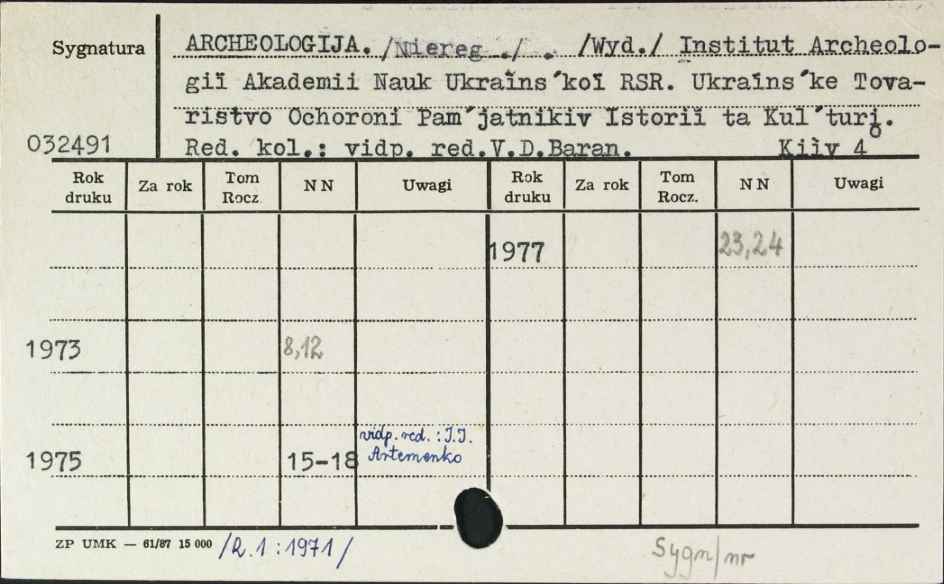 Sygnatura
032491
ARCHEOLOGIJA. /Niereg ./ . /Wyd./ Institut Archeolo-
giї Akademii Nauk Ukraїns´koї RSR. Ukraїns´ke Tova-
ristvo Ochoroni Pam´jatnikiv Istoriї ta Kul´turi.
Red. kol.: vidp. red.V.D.Baran. Kiїv 4
8
Rok druku Za rok Tom Rocz. NN Uwagi Rok druku Za rok Tom Rocz. NN Uwagi
1977 23,24
1973 8,12
vidp. red. : I.I.
1975 15-18 Artemenko
ZP UMK — 61/87 15 000 /R.1 : 1971/
Sygn/nr